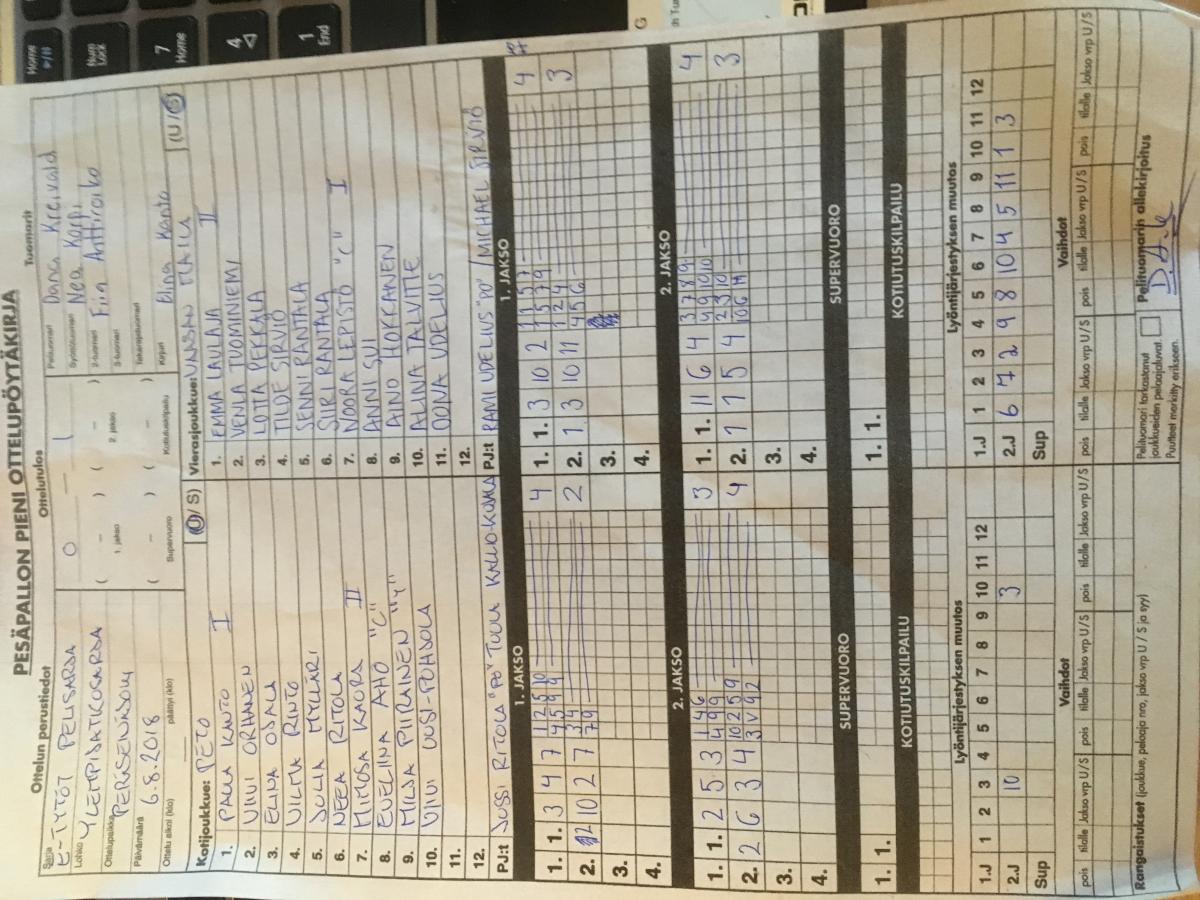 PESÄPALLON PIENI OTTELUPÖYTÄKIRJA
Ottelun perustiedot
Ottelutulos
Tuomarit
Sarja E-TYTÖT PELISARJA
Lohko YLEMPIJATKOSARJA
Ottelupaikka PERÄSEINÄJOKI
Päivämäärä 6.8.2018
Ottelu alkoi (klo) päättyi (klo)
0 — 1
( – ) ( – )
1. jakso 2. jakso
( – ) ( – )
Supervuoro Kotiutuskilpailu
Pelituomari Dana Kreivald
Syöttötuomari Nea Karpi
2-tuomari Fiin Anttiroiko
3-tuomari
Takarajatuomari
Kirjuri Elina Kanto
Kotijoukkue: PETO (U/S)
1. PAULA KANTO I
2. VIIVI ORHANEN
3. ELINA OJALA
4. VILJA RINTO
5. JULIA MYLLÄRI
6. NEEA RITOLA
7. MIIUSA KAURA II
8. EVELIINA AHO "C"
9. MILJA PIIRAINEN "4"
10. VIIVI UUSI-POHJOLA
11.
12.
PJ:t JUSSI RITOLA "PO" TUULI KALLIO-KUJALA
Vierasjoukkue: VAASAN MAILA (U/S)
1. EMMA LAULAJA II
2. VENLA TUOMINIEMI
3. LOTTA PEKKALA
4. TILDE SIRVIÖ
5. SENNI RANTALA
6. SIIRI RANTALA
7. NOORA LEPISTÖ "C" I
8. ANNI SUI
9. AINO HOKKANEN
10. ALINA TALVITIE
11. OONA UDELIUS
12.
PJ:t RAMI UDELIUS "PO" / MICHAEL SIRVIÖ
1. JAKSO
1. 1. 3 4 7 4
2. 10 2 7 2
3.
4.
1. JAKSO
1. 1. 3 10 2 4
2. 1 3 10 11 3
3.
4.
2. JAKSO
1. 1. 2 5 3 3
2. 2 6 3 4 4
3.
4.
2. JAKSO
1. 1. 11 6 4 4
2. 1 1 5 4 3
3.
4.
SUPERVUORO
1. 1.
KOTIUTUSKILPAILU
SUPERVUORO
1. 1.
KOTIUTUSKILPAILU
Lyöntijärjestyksen muutos
1.J 1 2 3 4 5 6 7 8 9 10 11 12
2.J 10 3
Sup
Lyöntijärjestyksen muutos
1.J 1 2 3 4 5 6 7 8 9 10 11 12
2.J 6 7 2 9 8 10 4 5 11 1 3
Sup
Vaihdot
pois tilalle Jakso vrp U/S pois tilalle Jakso vrp U/S pois tilalle Jakso vrp U/S
Vaihdot
pois tilalle Jakso vrp U/S pois tilalle Jakso vrp U/S pois tilalle Jakso vrp U/S
Rangaistukset (joukkue, pelaaja nro, jakso vrp U / S ja syy)
Pelituomari tarkastanut
joukkueiden pelaajaluvat.
Puutteet merkitty erikseen.
Pelituomarin allekirjoitus
Home
Num Lock
7 Home
4
1 End